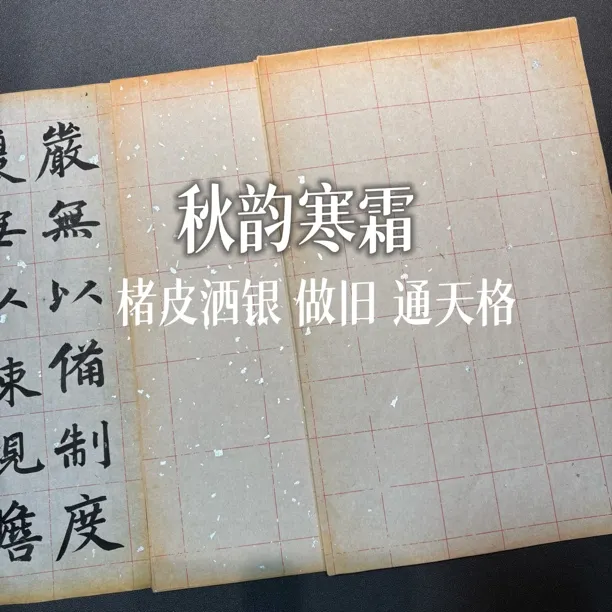 秋韵寒霜
楮皮洒银 做旧 通天格
嚴無以備制度